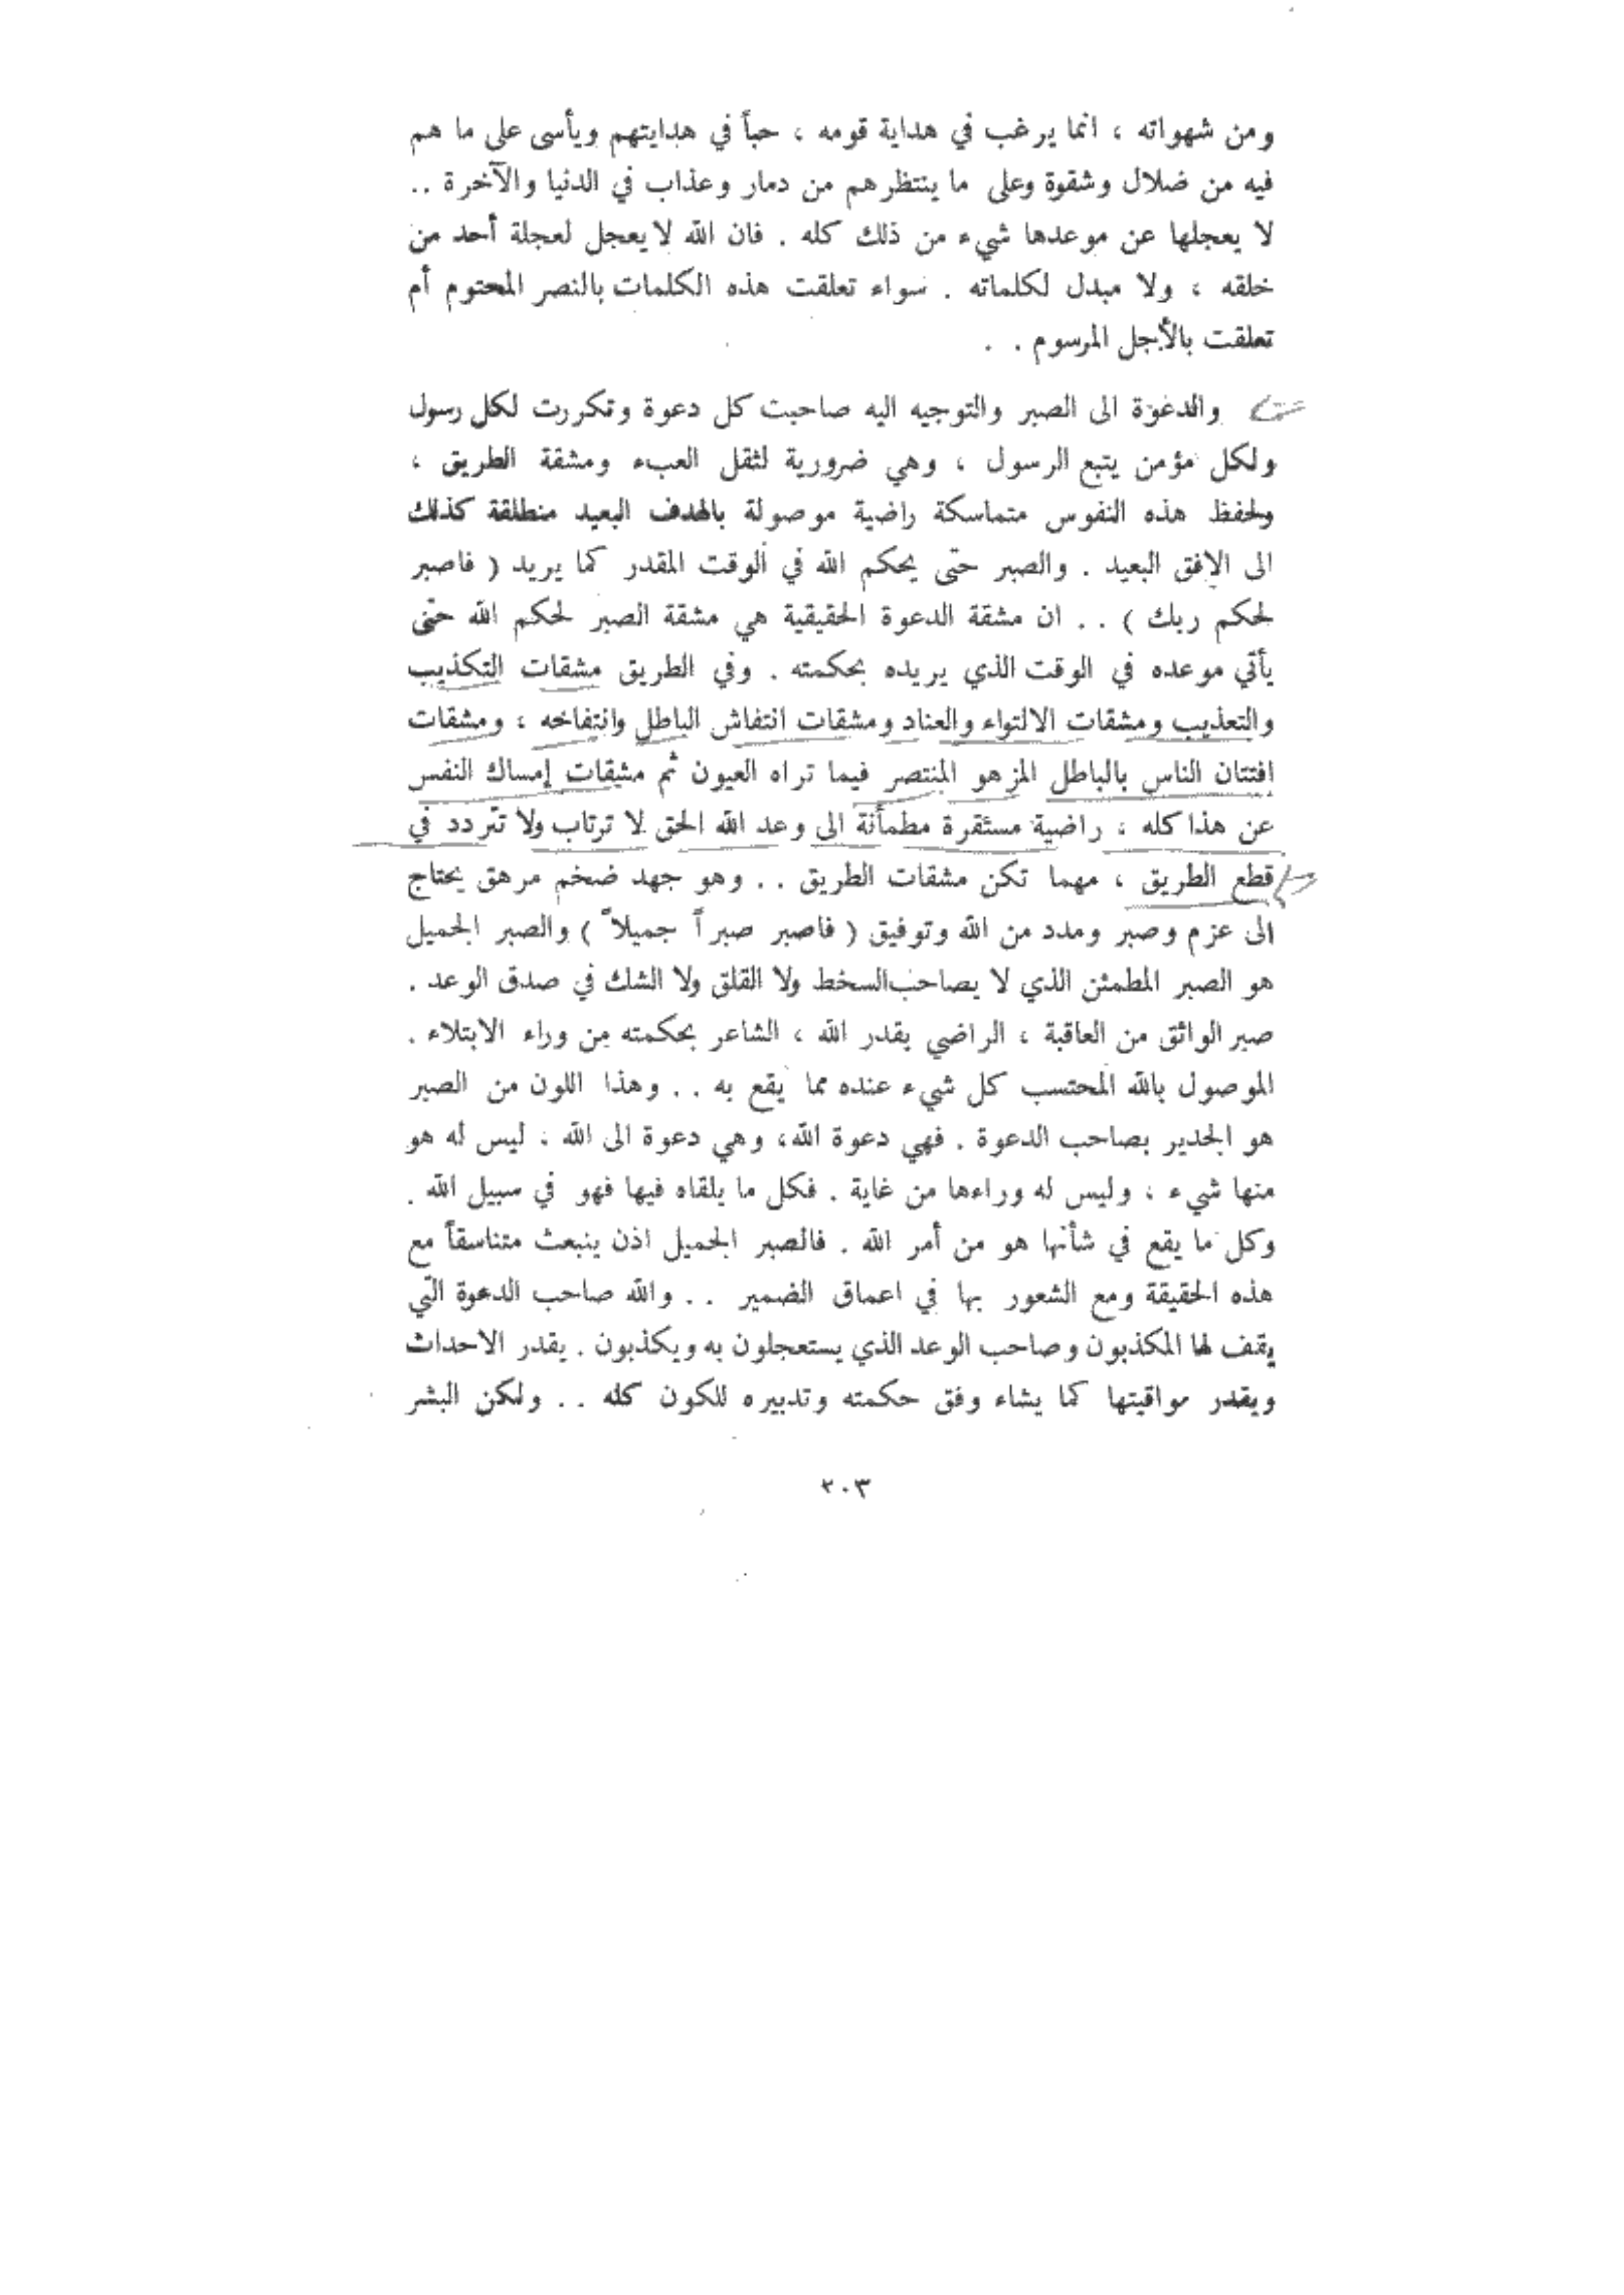 ومن شهواته ، انما يرغب في هداية قومه ، حباً في هدايتهم ويأسى على ما هم
فيه من ضلال وشقوة وعلى ما ينتظرهم من دمار وعذاب في الدنيا والآخرة ..
لا يعجلها عن موعدها شيء من ذلك كله . فان الله لا يعجل لعجلة أحد من
خلقه ، ولا مبدل لكلماته . سواء تعلقت هذه الكلمات بالنصر المحتوم أم
تعلقت بالأجل المرسوم . .
والدعوة الى الصبر والتوجيه اليه صاحبت كل دعوة وتكررت لكل رسول
ولكل مؤمن يتبع الرسول ، وهي ضرورية لثقل العبء ومشقة الطريق ،
ولحفظ هذه النفوس متماسكة راضية موصولة بالهدف البعيد منطلقة كذلك
الى الافق البعيد . والصبر حتى يحكم الله في الوقت المقدر كما يريد ( فاصبر
لحكم ربك ) . . ان مشقة الدعوة الحقيقية هي مشقة الصبر لحكم الله حتى
يأتي موعده في الوقت الذي يريده بحكمته . وفي الطريق مشقات التكذيب
والتعذيب ومشقات الالتواء والعناد ومشقات انتفاش الباطل وانتفاخه ، ومشقات
افتتان الناس بالباطل المزهو المنتصر فيما تراه العيون ثم مشقات إمساك النفس
عن هذا كله ، راضية مستقرة مطمأنة الى وعد الله الحق لا ترتاب ولا تتردد في
قطع الطريق ، مهما تكن مشقات الطريق . . وهو جهد ضخم مرهق يحتاج
الى عزم وصبر ومدد من الله وتوفيق ( فاصبر صبراً جميلاً ) والصبر الجميل
هو الصبر المطمئن الذي لا يصاحب السخط ولا القلق ولا الشك في صدق الوعد .
صبر الواثق من العاقبة ، الراضي بقدر الله ، الشاعر بحكمته من وراء الابتلاء .
الموصول بالله المحتسب كل شيء عنده مما يقع به . . وهذا اللون من الصبر
هو الجدير بصاحب الدعوة . فهي دعوة الله، وهي دعوة الى الله ، ليس له هو
منها شيء ، وليس له وراءها من غاية . فكل ما يلقاه فيها فهو في سبيل الله .
وكل ما يقع في شأنها هو من أمر الله . فالصبر الجميل اذن ينبعث متناسقاً مع
هذه الحقيقة ومع الشعور بها في اعماق الضمير . . والله صاحب الدعوة التي
يقف لها المكذبون وصاحب الوعد الذي يستعجلون به ويكذبون . يقدر الاحداث
ويقدر مواقيتها كما يشاء وفق حكمته وتدبيره للكون كله . . ولكن البشر
٢٠٣